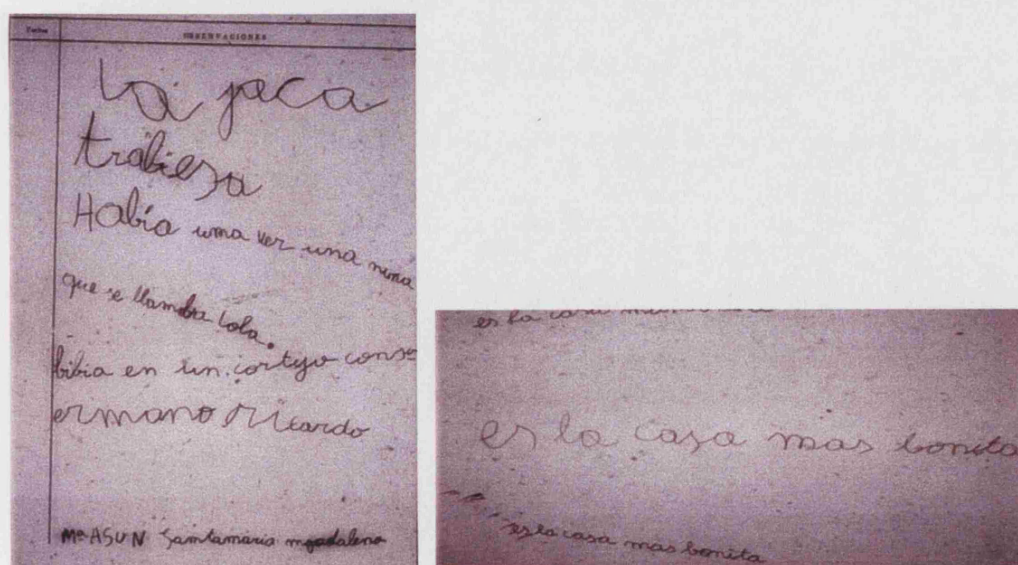 Fechas OBSERVACIONES
La jaca
trabiesa
Había uma vez una nina
que se llamaba Lola.
bibia en un cortyo conse
ermano Ricardo
Mª ASUN Santamaria
es la casa mas bonita
es la casa mas bonita